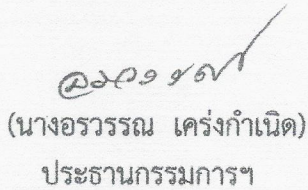 (นางอรวรรณ เคร่งกำเนิด)
ประธานกรรมการฯ